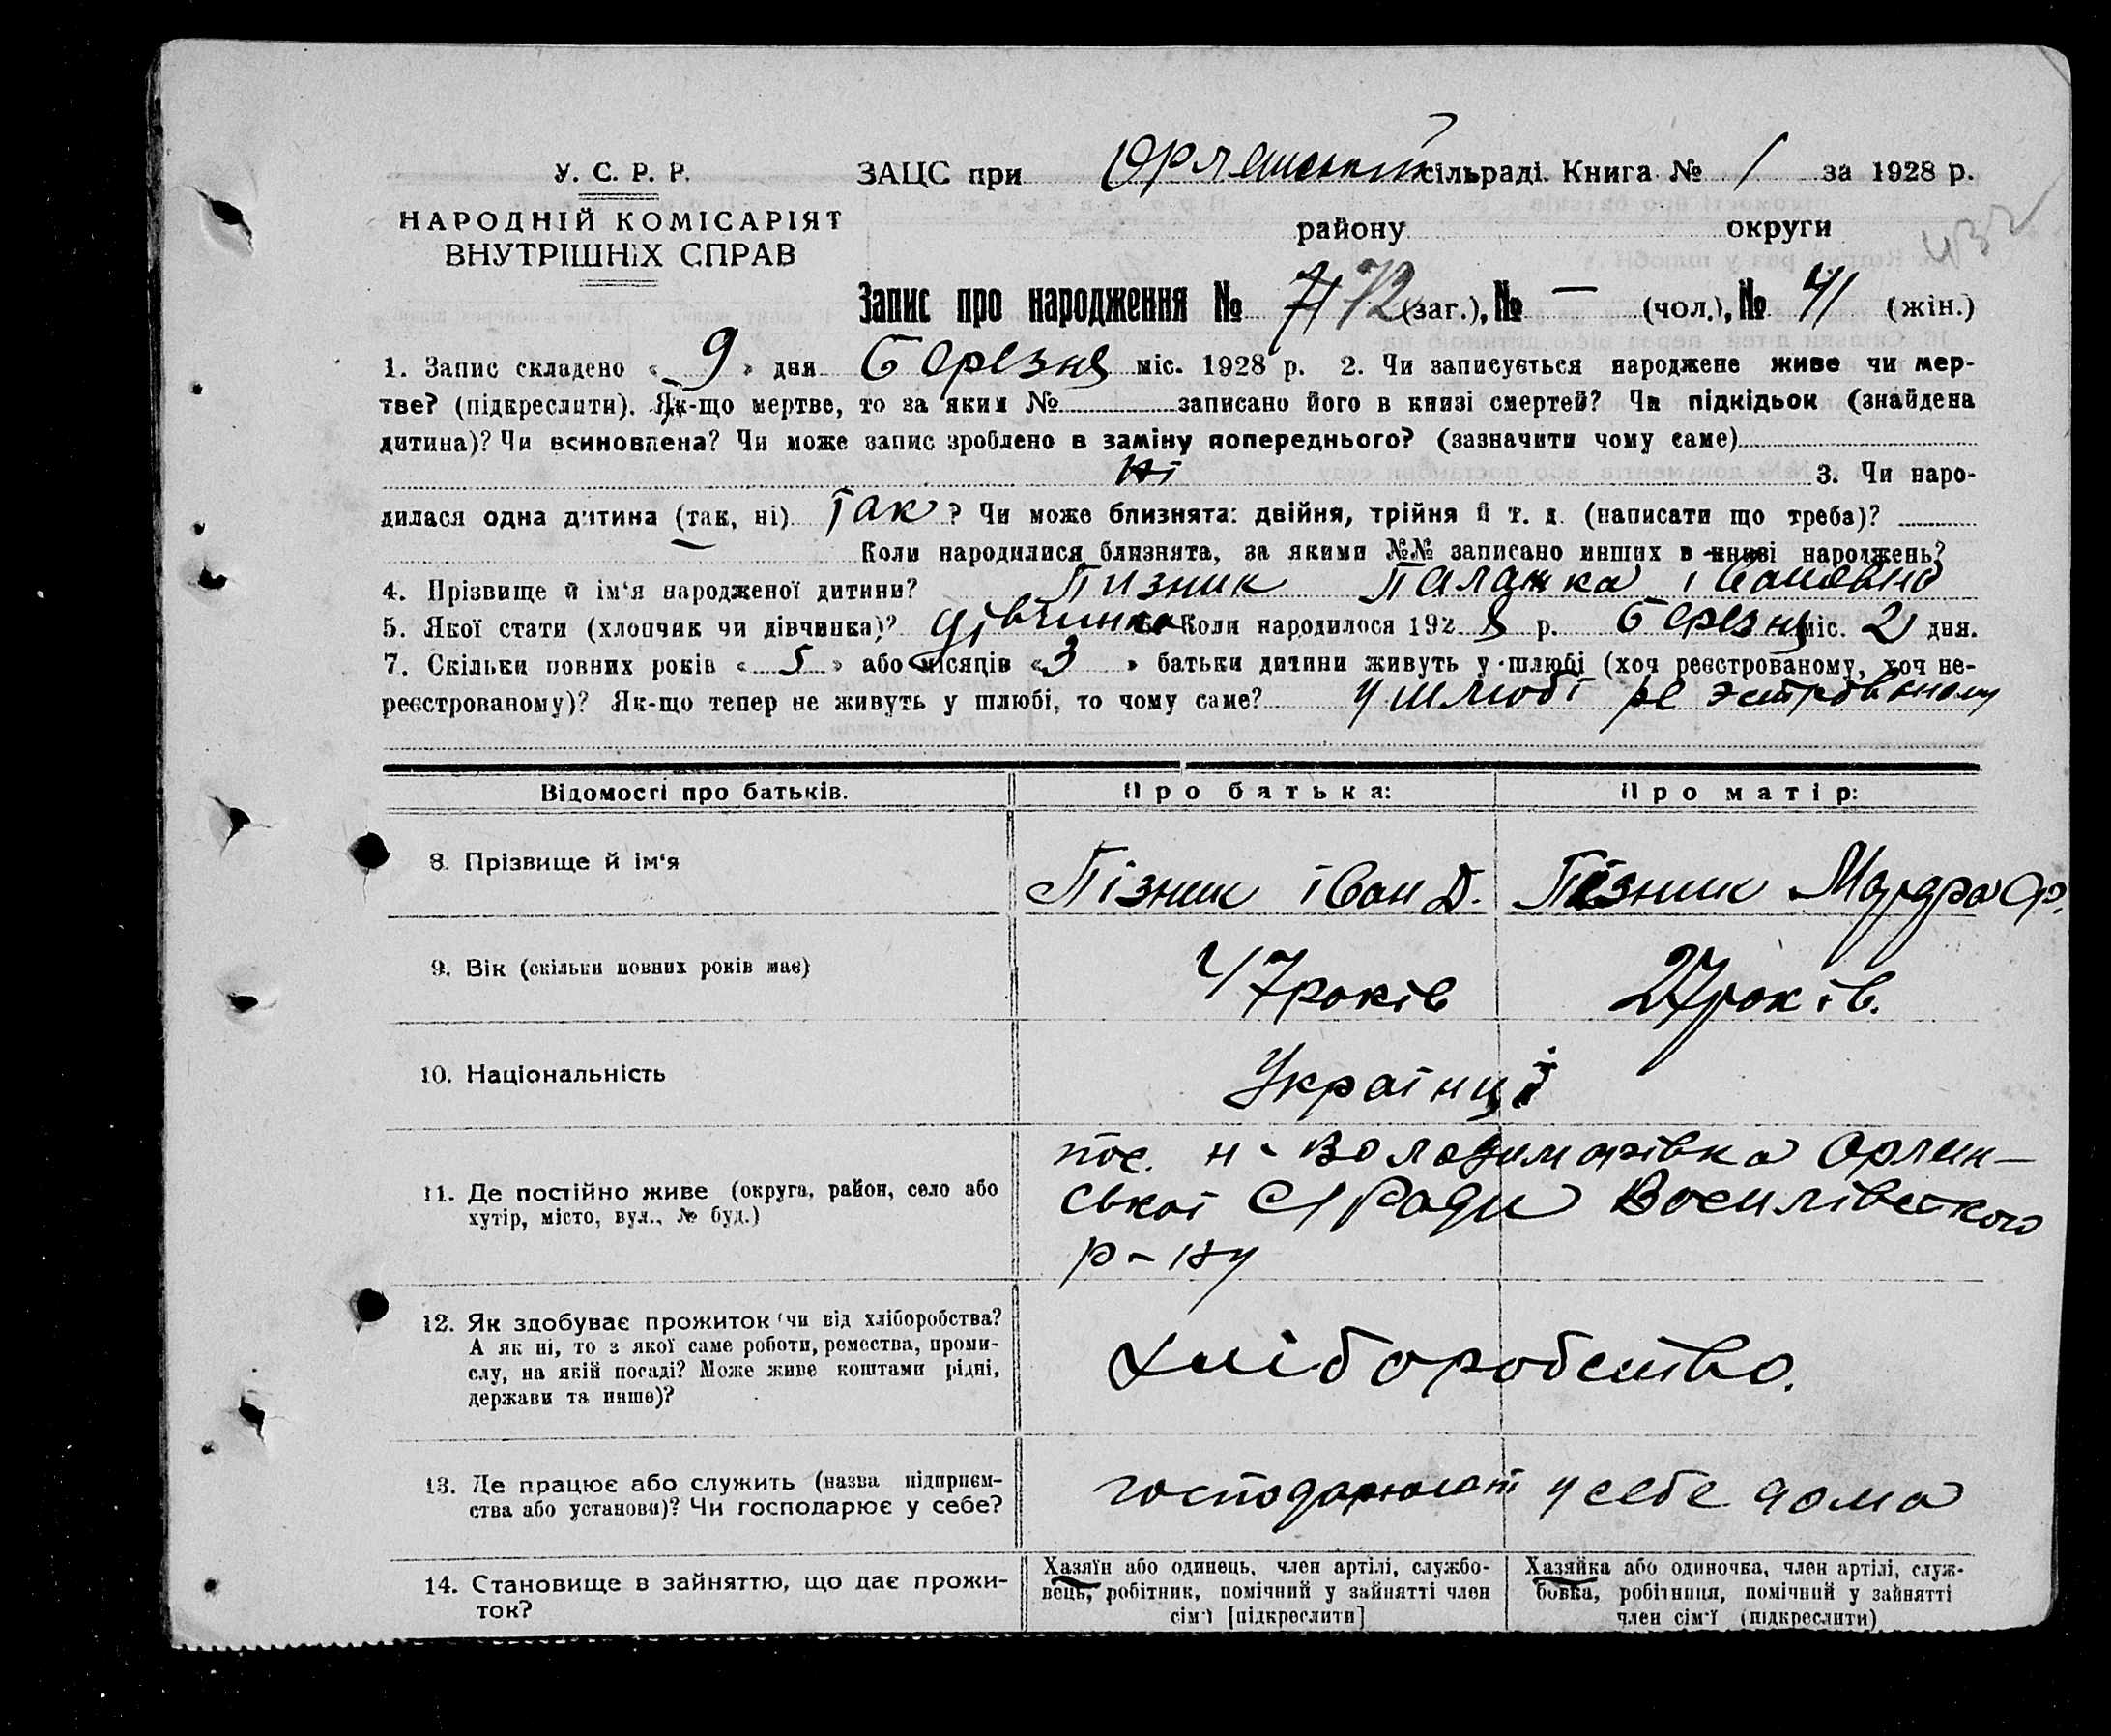 У. С. Р. Р.
НАРОДНІЙ КОМІСАРІЯТ
ВНУТРІШНіХ СПРАВ
ЗАЦС при Орлянській сільраді. Книга № 1 за 1928 р.
району округи
432
Запис про народження № 71 72 (заг.), № — (чол.), № 41 (жін.)
1. Запис складено « 9 » дня Березня міс. 1928 р. 2. Чи записується народжене живе чи мер-
тве? (підкреслити). Як-що мертве, то за яким № записано його в книзі смертей? Чи підкідьок (знайдена
дитина)? Чи всиновлена? Чи може запис зроблено в заміну попереднього? (зазначити чому саме)
Ні 3. Чи наро-
дилася одна дитина (так, ні) Так ? Чи може близнята: двійня, трійня й т. д. (написати що треба)?
Коли народилися близнята, за якими №№ записано инших в книзі народжень?
4. Прізвище й ім'я народженої дитини? Пизник Палажка Івановна
5. Якої стати (хлопчик чи дівчинка)? дівчинка 6. Коли народилося 192 8 р. Березня міс. 2 дня.
7. Скільки повних років « 5 » або місяців « 3 » батьки дитини живуть у шлюбі (хоч реєстрованому, хоч не-
реєстрованому)? Як-що тепер не живуть у шлюбі, то чому саме? у шлюбі реэстрованому
Відомості про батьків. Про батька: Про матір:
8. Прізвище й ім'я Пізник іван Д. Пізник Ф.
9. Вік (скільки повних років має) 47 років 27 років.
10. Національність Українці
11. Де постійно живе (округа, район, село або
хутір, місто, вул., № буд.)
пос. н-Володимирівка Орлян-
ської С/Ради Василівського
р-ну
12. Як здобуває прожиток (чи від хліборобства?
А як ні, то з якої саме роботи, ремества, проми-
слу, на якій посаді? Може живе коштами рідні,
держави та инше)?
хліборобство.
13. Де працює або служить (назва підприєм-
ства або установи)? Чи господарює у себе?
господарюють у себе дома
14. Становище в зайняттю, що дає прожи-
ток?
Хазяїн або одинець, член артілі, службо-
вець, робітник, помічний у зайнятті член
сім'ї [підкреслити]
Хазяйка або одиночка, член артілі, служ-
бовка, робітниця, помічний у зайнятті
член сім'ї (підкреслити)